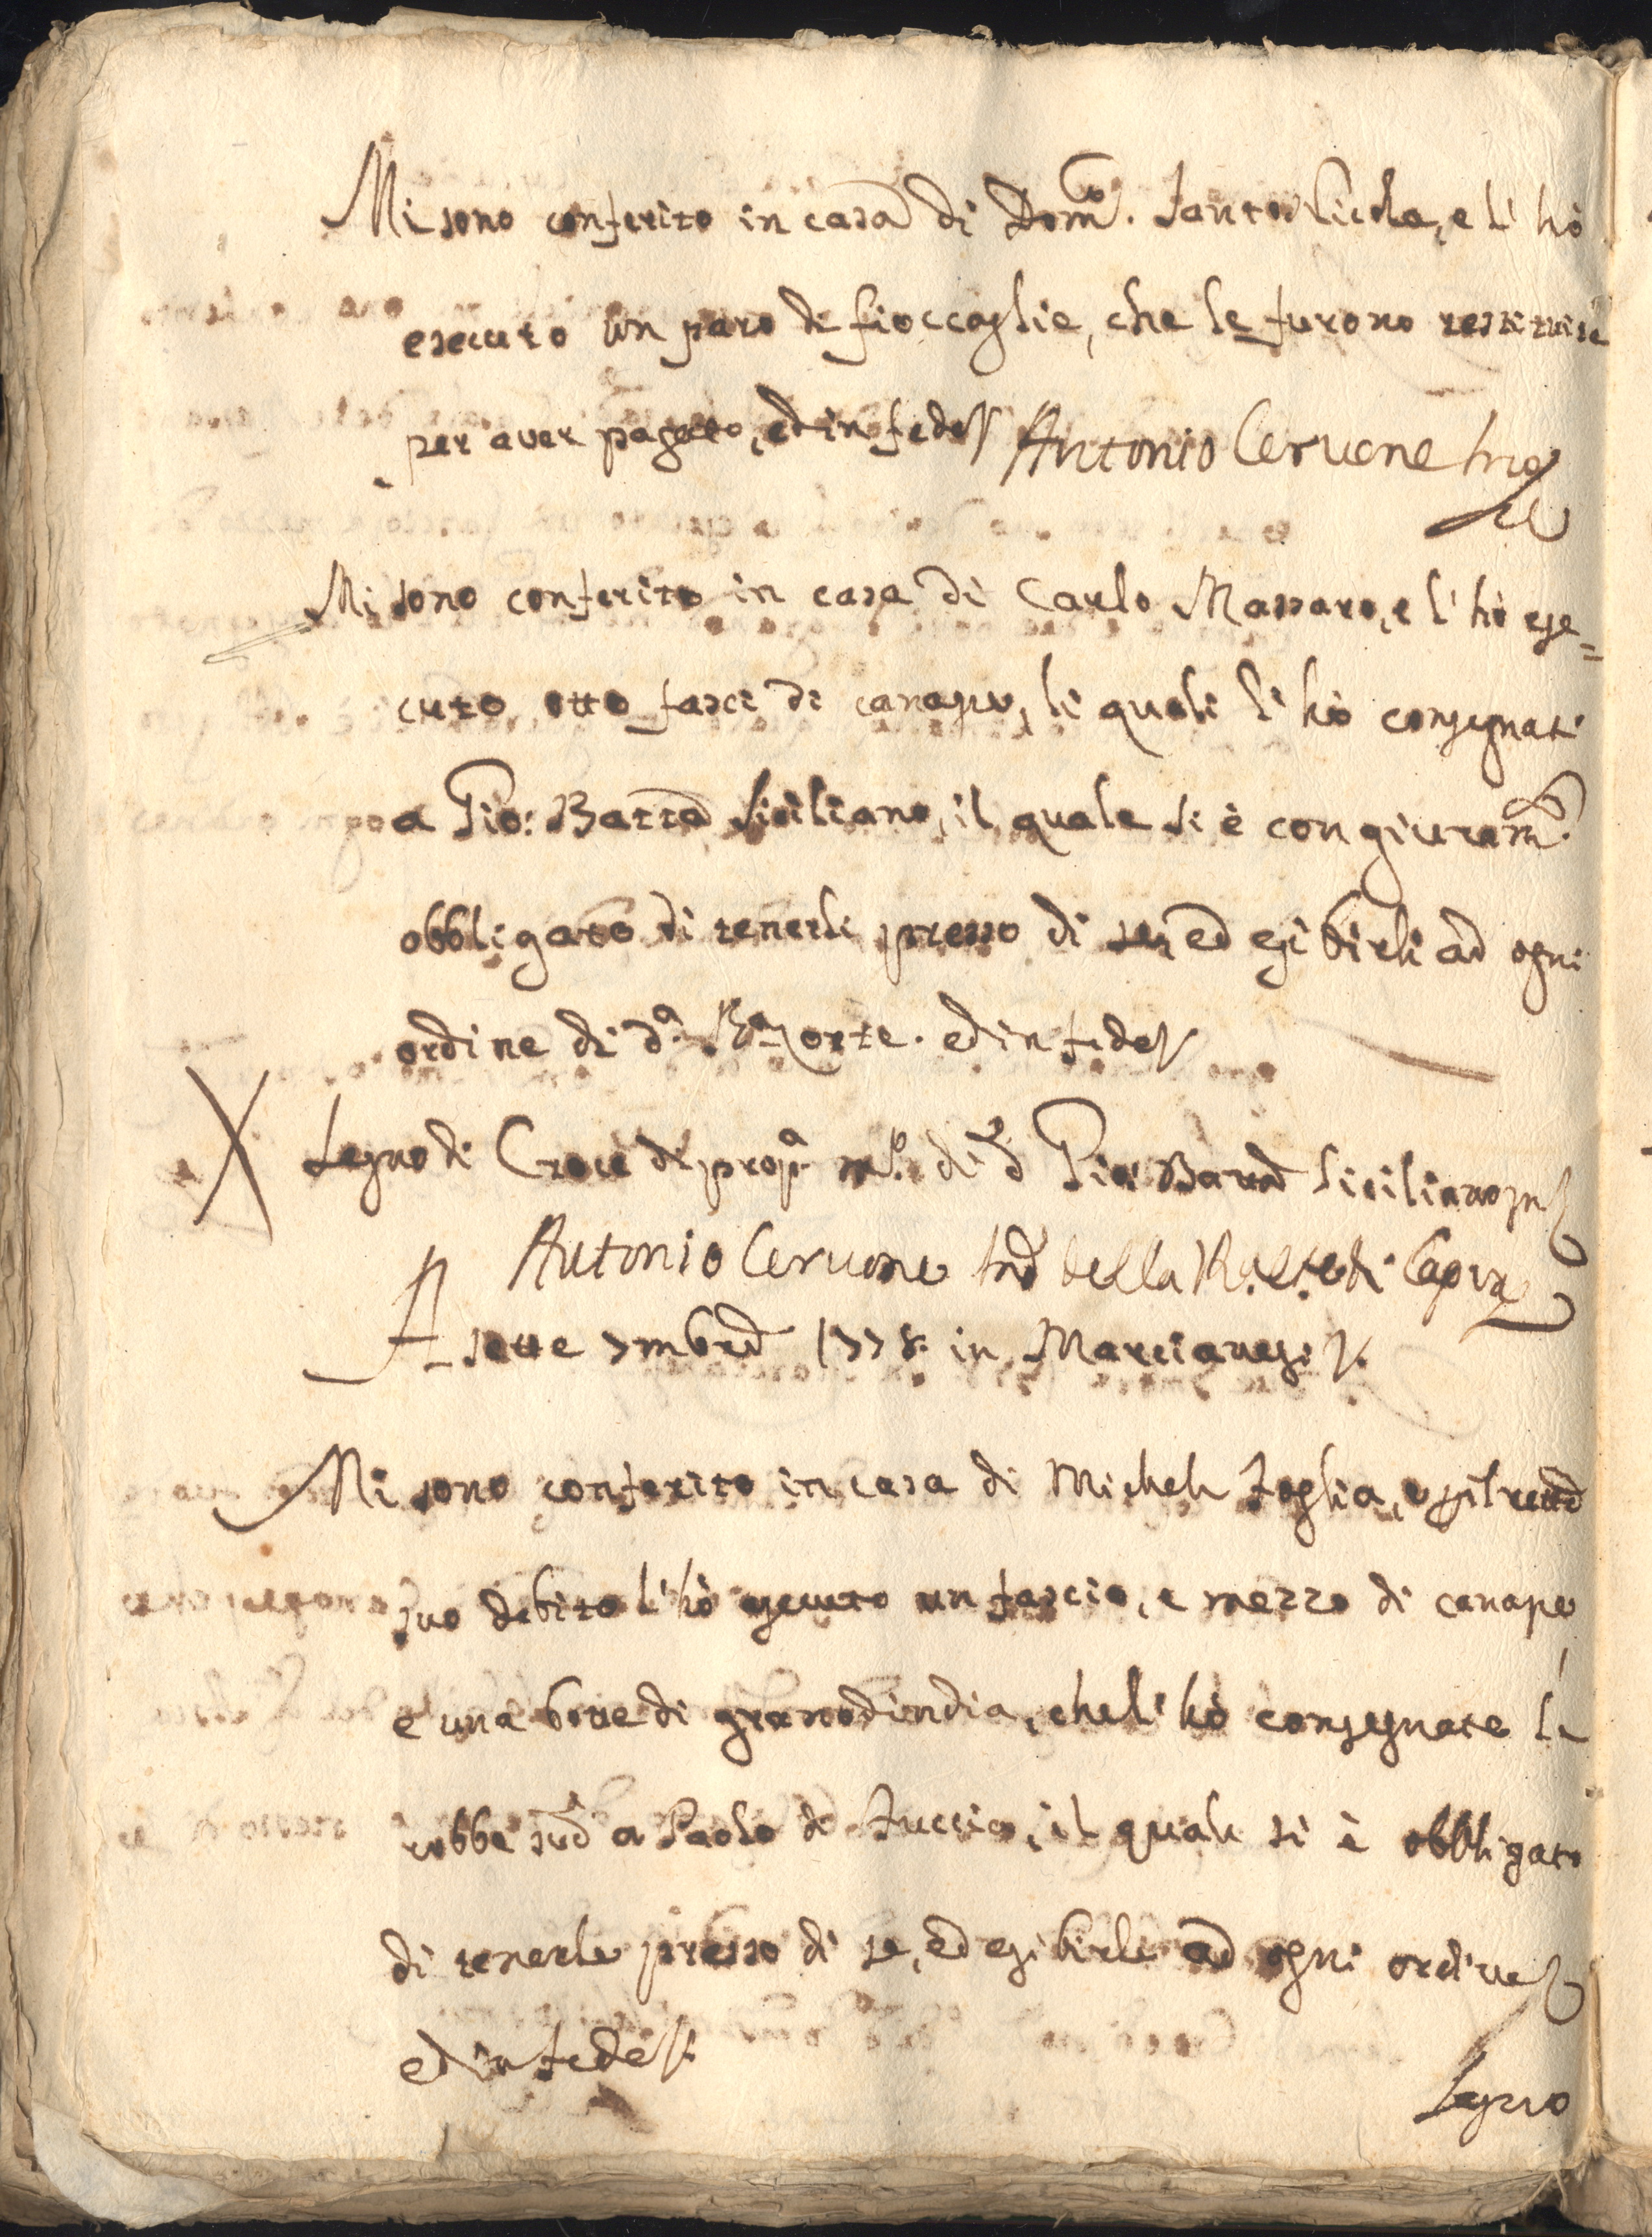 Mi sono conferito in casa di Dom.co Santo Nicola, e l'hò
esecuto un paro di fioccaglie, che le furono restituite
per aver pagato, ed in fede//. Antonio Cervone
Mi sono conferito in casa di Carlo Massaro, e l'hò ese=
cuto otto fasci di canape, li quali l'hò consegnati
a Gio: Batta Siciliano, il quale si è con giuram.to
obbligato di tenerli presso di se, ed esibirli ad ogni
ordine di d.a R.a Corte. ed in fede//
X Segno di Croce di prop.a m.o di d.o Gio: Batta Siciliano
Antonio Cervone della R. C.te di Capua
A sette 7mbre 1778. in Marcianesi//.
Mi sono conferito in casa di Michele Foglia, e
suo debito l'hò esecuto un fascio, e mezzo di canape
e una botte di granodindia, che l'hò consegnate le
robbe sud.e a Paolo di Tuccio, il quale si è obbligato
di tenerle presso di se, ed esibirle ad ogni ordine
ed in fede//.
Segno